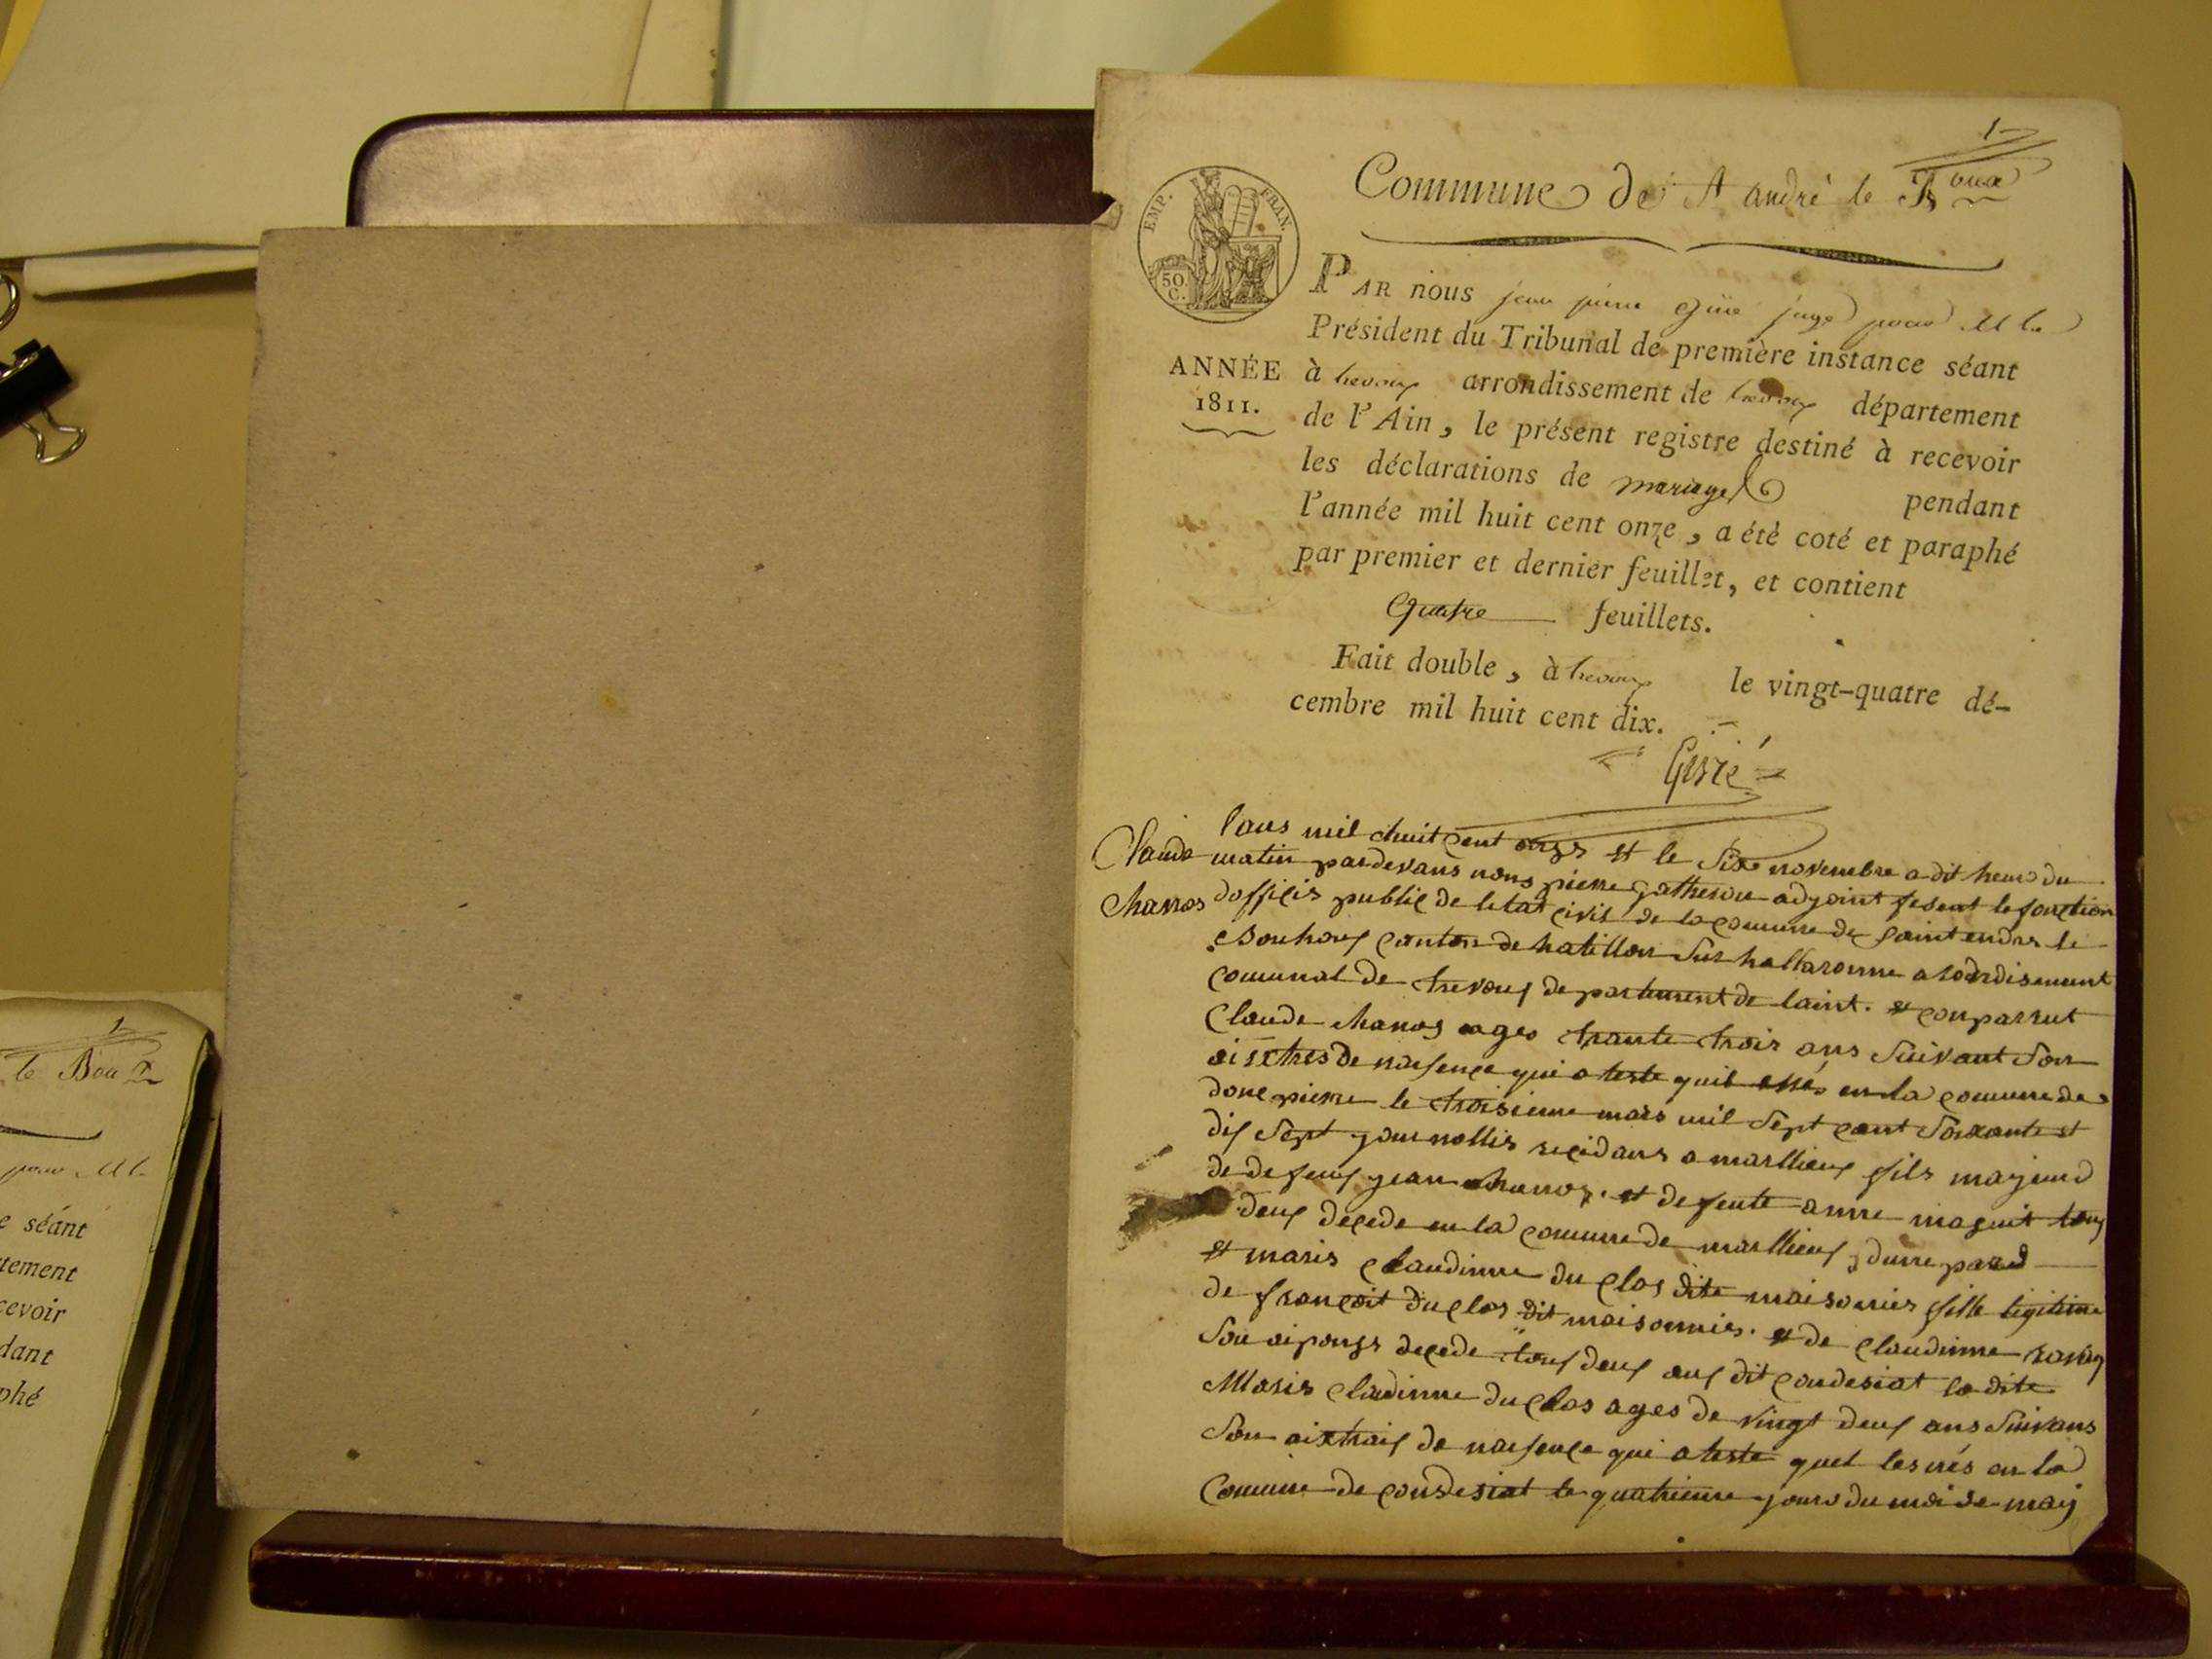 1
Commune de St andré le Boux
EMP. FRAN.
50. C.
PAR nous jean pierre juge pour M le
Président du Tribunal de première instance séant
ANNÉE
1811.
à trevoux arrondissement de trevoux département
de l'Ain, le présent registre destiné à recevoir
les déclarations de mariages pendant
l'année mil huit cent onze, a été coté et paraphé
par premier et dernier feuillet, et contient
quatre feuillets.
Fait double, à trevoux le vingt-quatre dé-
cembre mil huit cent dix.
Claude
Chanos
lans mil chuit cent onze et le six novembre a dit heure du
matin pardevans nous pierre gatherou adjoint fesent le fonction
dofficis public de letat civil de la comune de saint endre le
Bouhoux canton de hatillon sur hallaronne arondisement
comunal de trevous departement de laint. et conparrut
Claude chanos ages trante trois ans suivant son
aisxtres de naisence qui ateste quil essés en la comune de
donc pierre le troisieme mars mil sept cant soixante et
dis sept journallis residans a marllieux fils majeurd
de defeus jean chanos. et defeute anne magnit tous
deux decede en la comune de marllieux dune pard
et maris claudinne du clos dite maisonnier fille legitime
de françoit du clos dit maisonnies. et de claudinne
son aiponse decede tous deux aus dit condesiat la dite
Maris claudinne du clos ages de vingt deux ans suivans
son aixtrais de naisence qui ateste quel les nés en la
Comune de condesiat le quatrieme jours du moi de maij
1
le Bou
pour M l
e séant
tement
cevoir
dant
phé